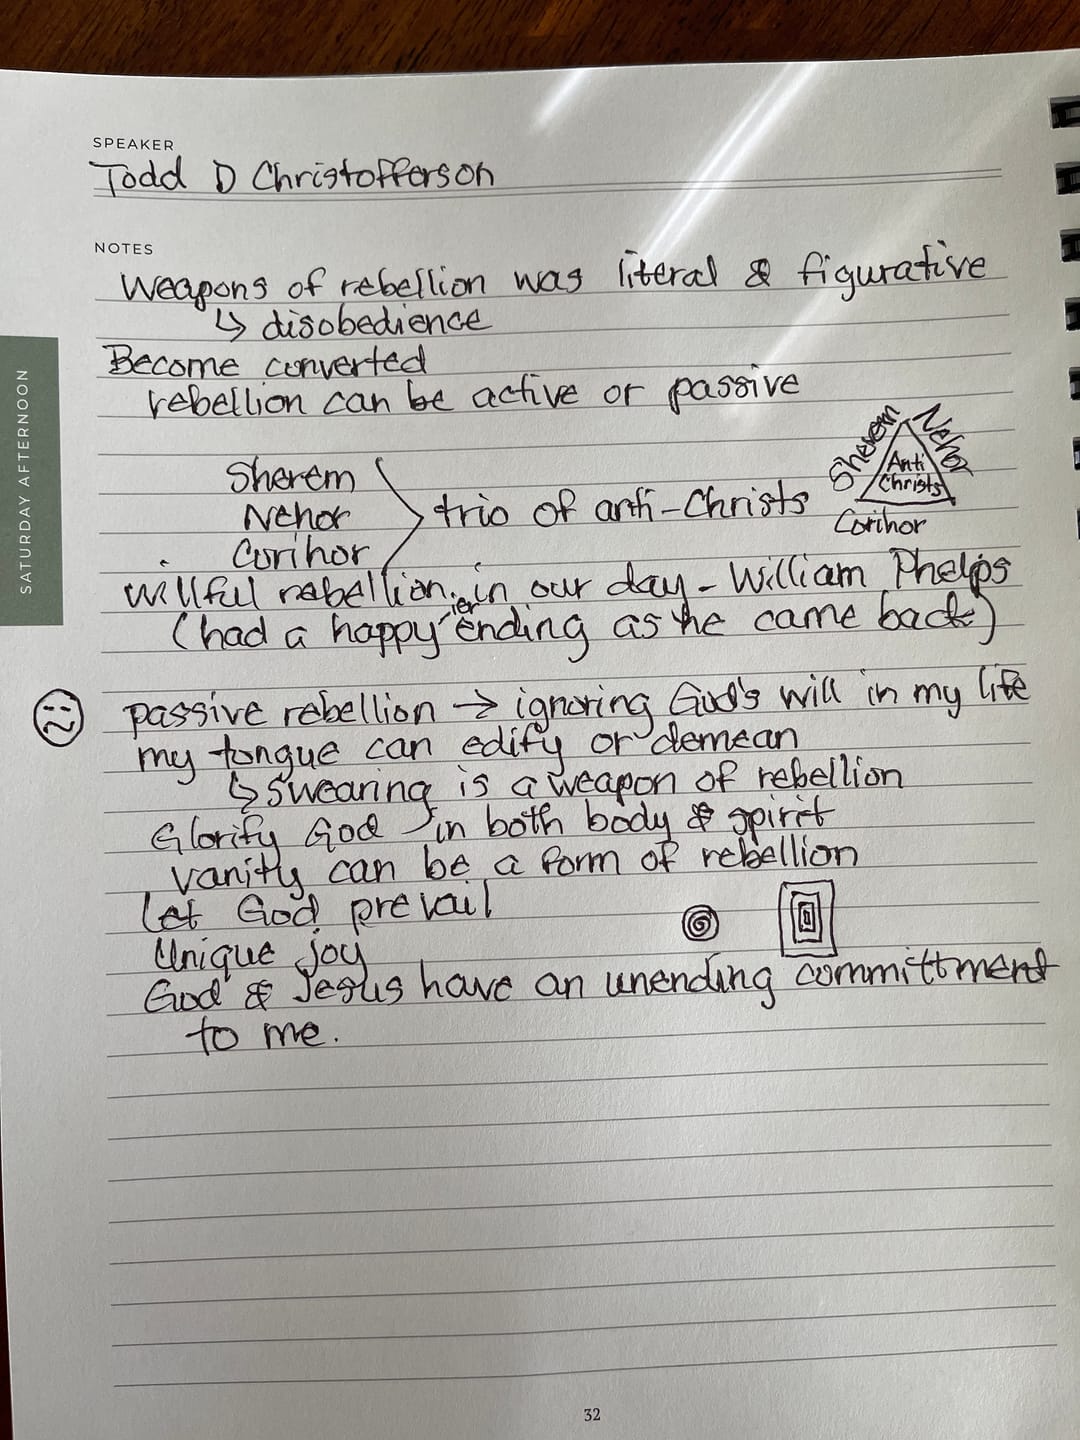 SPEAKER
Todd D Christofferson
NOTES
Weapons of rebellion was literal & figurative
↳ disobedience
Become converted
rebellion can be active or passive
Sherem
Nehor
Corihor
trio of anti-Christs
Sherem
Nehor
Anti
Christs
Corihor
willful rebellion in our day - William Phelps
(had a happy ier ending as he came back)
passive rebellion → ignoring God's will in my life
my tongue can edify or demean
↳ Swearing is a weapon of rebellion
Glorify God in both body & spirit
vanity can be a form of rebellion
Let God prevail
Unique joy
God & Jesus have an unending committment
to me.
SATURDAY AFTERNOON
32